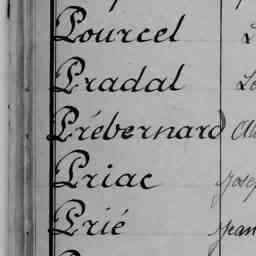 Pourcel
Pradal
Prébernard
Priac
Prié